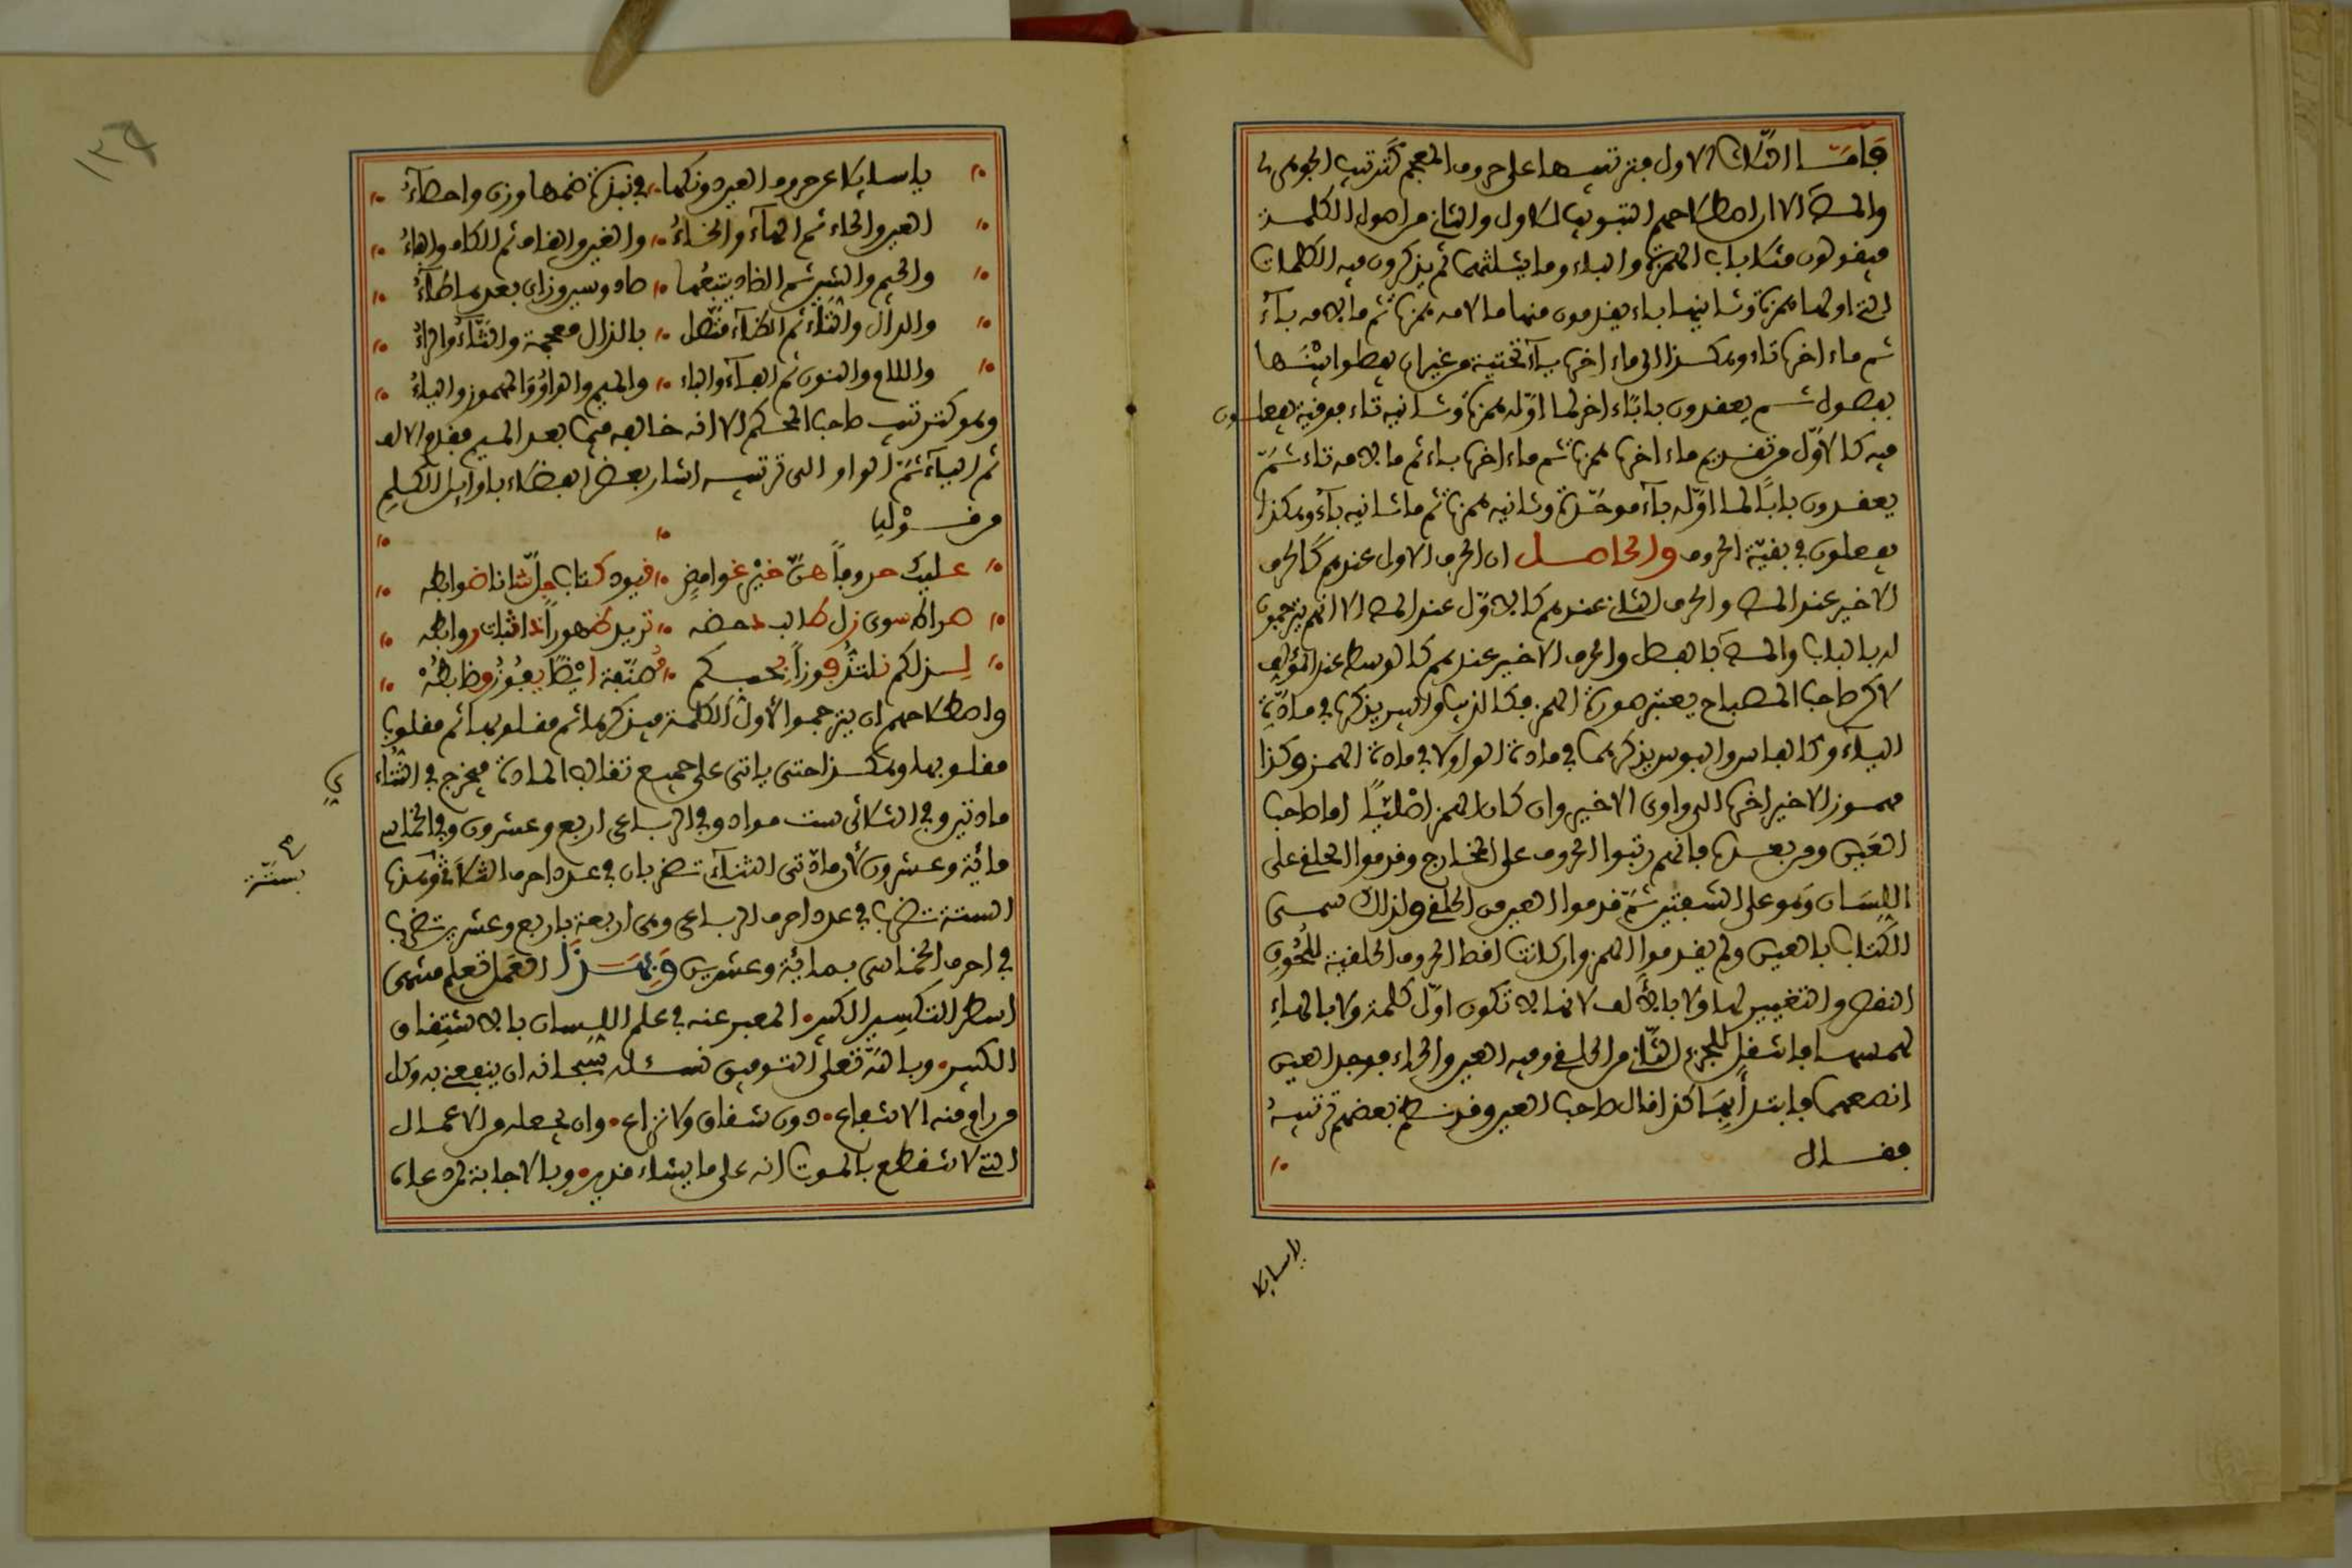 فأما الثلاث الأول فترتيبها على حروف المعجم كترتيب الجوهري
والمص الا ان اصطلاحهم التبويب للاول والثاني من اصول الكلمة
فيقولون مثلا باب الهمزة والباء وما يثلثهما ثم يذكرون فيه الكلمات
التي اولها همزة وثانيها باء يقدمون منها ما لامه همزة ثم ما لامه باء
ثم ماء اخرها تاء وهكذا الى ماء اخرها ياء تحتية من غير ان يفصلوا بينها
بفصول ثم يعقدون بابا ءاخر لما اوّله همزة وثانيه تاء فوقية يفعلون
فيه كالاوّل من تقديم ماء اخرها همزة ثم ماء اخرها باء ثم ما لامه تاء ثمّ
يعقدون بابًا لما اوّله باء موحّدة وثانيه همزة ثم ما ثانيه باء وهكذا
يفعلون في بقيّة الحروف والحاصل ان الحرف الاول عندهم كالحرف
الاخير عند المص والحرف الثاني عندهم كالاوّل عند المص الا انهم يترجمون
له بالباب والمص بالفصل والحرف الاخير عندهم كالوسط عند المؤلف
لاكن صاحب المصباح يعتبر صورة الهمز فكالذيب والبير يذكره في مادّة
الياء وكالفاس والبوس يذكرهما في مادة الواو لا في مادة الهمز وكذا
مهموز الاخير اخره الى واوى الاخير وان كان الهمز اصليًّا اما صاحب
العين ومن بعده فانهم رتبوا الحروف على المخارج وقدموا الحلق على
اللسان وهو على الشفتين ثمّ قدموا العين من الحلق ولذلك سمى
الكتاب بالعين ولم يقدموا الهمز وان كانت اقصا الحروف الحلقية للحُوق
النقص والتغيير لها ولا بالالف لانها لا تكون اوّل كلمة ولا بالهاء
لهمسها فانتقل للحيز الثاني من الحلق وفيه العين والحاء فوجد العين
انصعهما فابتدأ بها كذا قال صاحب العين وقد نظم بعضهم ترتيبه
فقال
ياسايلا
ياسايلا عن حروف العين دونكها في نبذة ضمها وزن واحصاء
العين والحاء ثم الهاء والخاء والغين والقاف ثم الكاف والهاء
والجيم والشين ثم الضاد يتبعها صاد وسين وزاى بعدها طاء
والدال والتاء ثم الظاء متّصل بالذال معجمة والثاء والراء
واللام والنون ثم الفاء والباء والميم والواو والمهموز والياء
وهو كترتيب صاحب المحكم الا انه خالفه فيما بعد الميم فقدم الالف
ثم الياء ثمّ الواو والى ترتيبه اشار بعض الفضلاء باوايل الكلم
من قوليا
عليك حروفاً هنّ خير غوامض قيود كتاب جلّ شانا ضوابطه
صراط سوى زل طالب دحضه تزيد ظهوراً ذا ثبات روابطه
لذلكم نلتذ فوزاً بمحكم مُصنّفه ايضا يفوز وضابطه
واصطلاحهم ان يترجموا لأول الكلمة فيذكرها ثم مقلوبها ثم مقلوب
مقلوبها وهكذا حتى ياتى على جميع تقاليب المادة فيخرج في الثناء
ى
مادتين وفي الثلاثى ست مواد وفي الرباعى اربع وعشرون وفي الخماسي
مائية وعشرون لان مادتى الثناء تضربان في عدد احرف الثلاثي وهذه
بستّة
الستة تضرب في عدد احرف الرباعى وهى اربعة باربع وعشرين تضرب
في احرف الخماسى بمائية وعشرين وبهذا العمل تعلم منهى
اسطر التكسير الكبير المعبر عنه في علم اللسان بالاشتقاق
الكبير وبالله تعلى التوفيق نسئله سبحانه ان ينفعني به وكل
من رام منه الانتفاع دون شقاق ولا نزاع وان يجعله من الاعمال
التي لا تنقطع بالموت انه على ما يشاء قدير وبالاجابة لمن دعاه